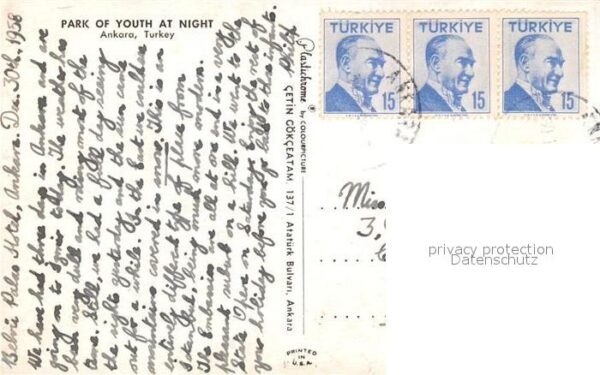 PARK OF YOUTH AT NIGHT
Ankara, Turkey
Belvü Palas Hotel, Ankara. Dec. 30th, 1958
We have had three days in Ankara and are
going on to Izmir today. The weather has
been very dull and rainy most of the
time. Still we had a full day seeing
the sights yesterday and the sun came
out for a while. In the east we could see
mountains covered in snow. This is an
entirely different type of place from
Istanbul, being much more modern.
The Embassies are all at one end in a very
pleasant suburb on a hill. We went to the
State Opera on Saturday. Enjoy the rest of
your holiday before you go back to the
Plastichrome ® by COLOURPICTURE
ÇETİN GÖKÇEATAM 137/1 Atatürk Bulvarı, Ankara
PRINTED
IN
U.S.A.
TÜRKİYE
15
TÜRKİYE
15
TÜRKİYE
15
Miss
3,
privacy protection
Datenschutz